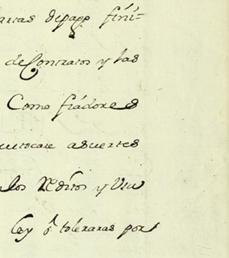 cartas de pago fini=
de Contratos y las
Como fiadores
asuertes
los Reditos y
ley q toleraras por